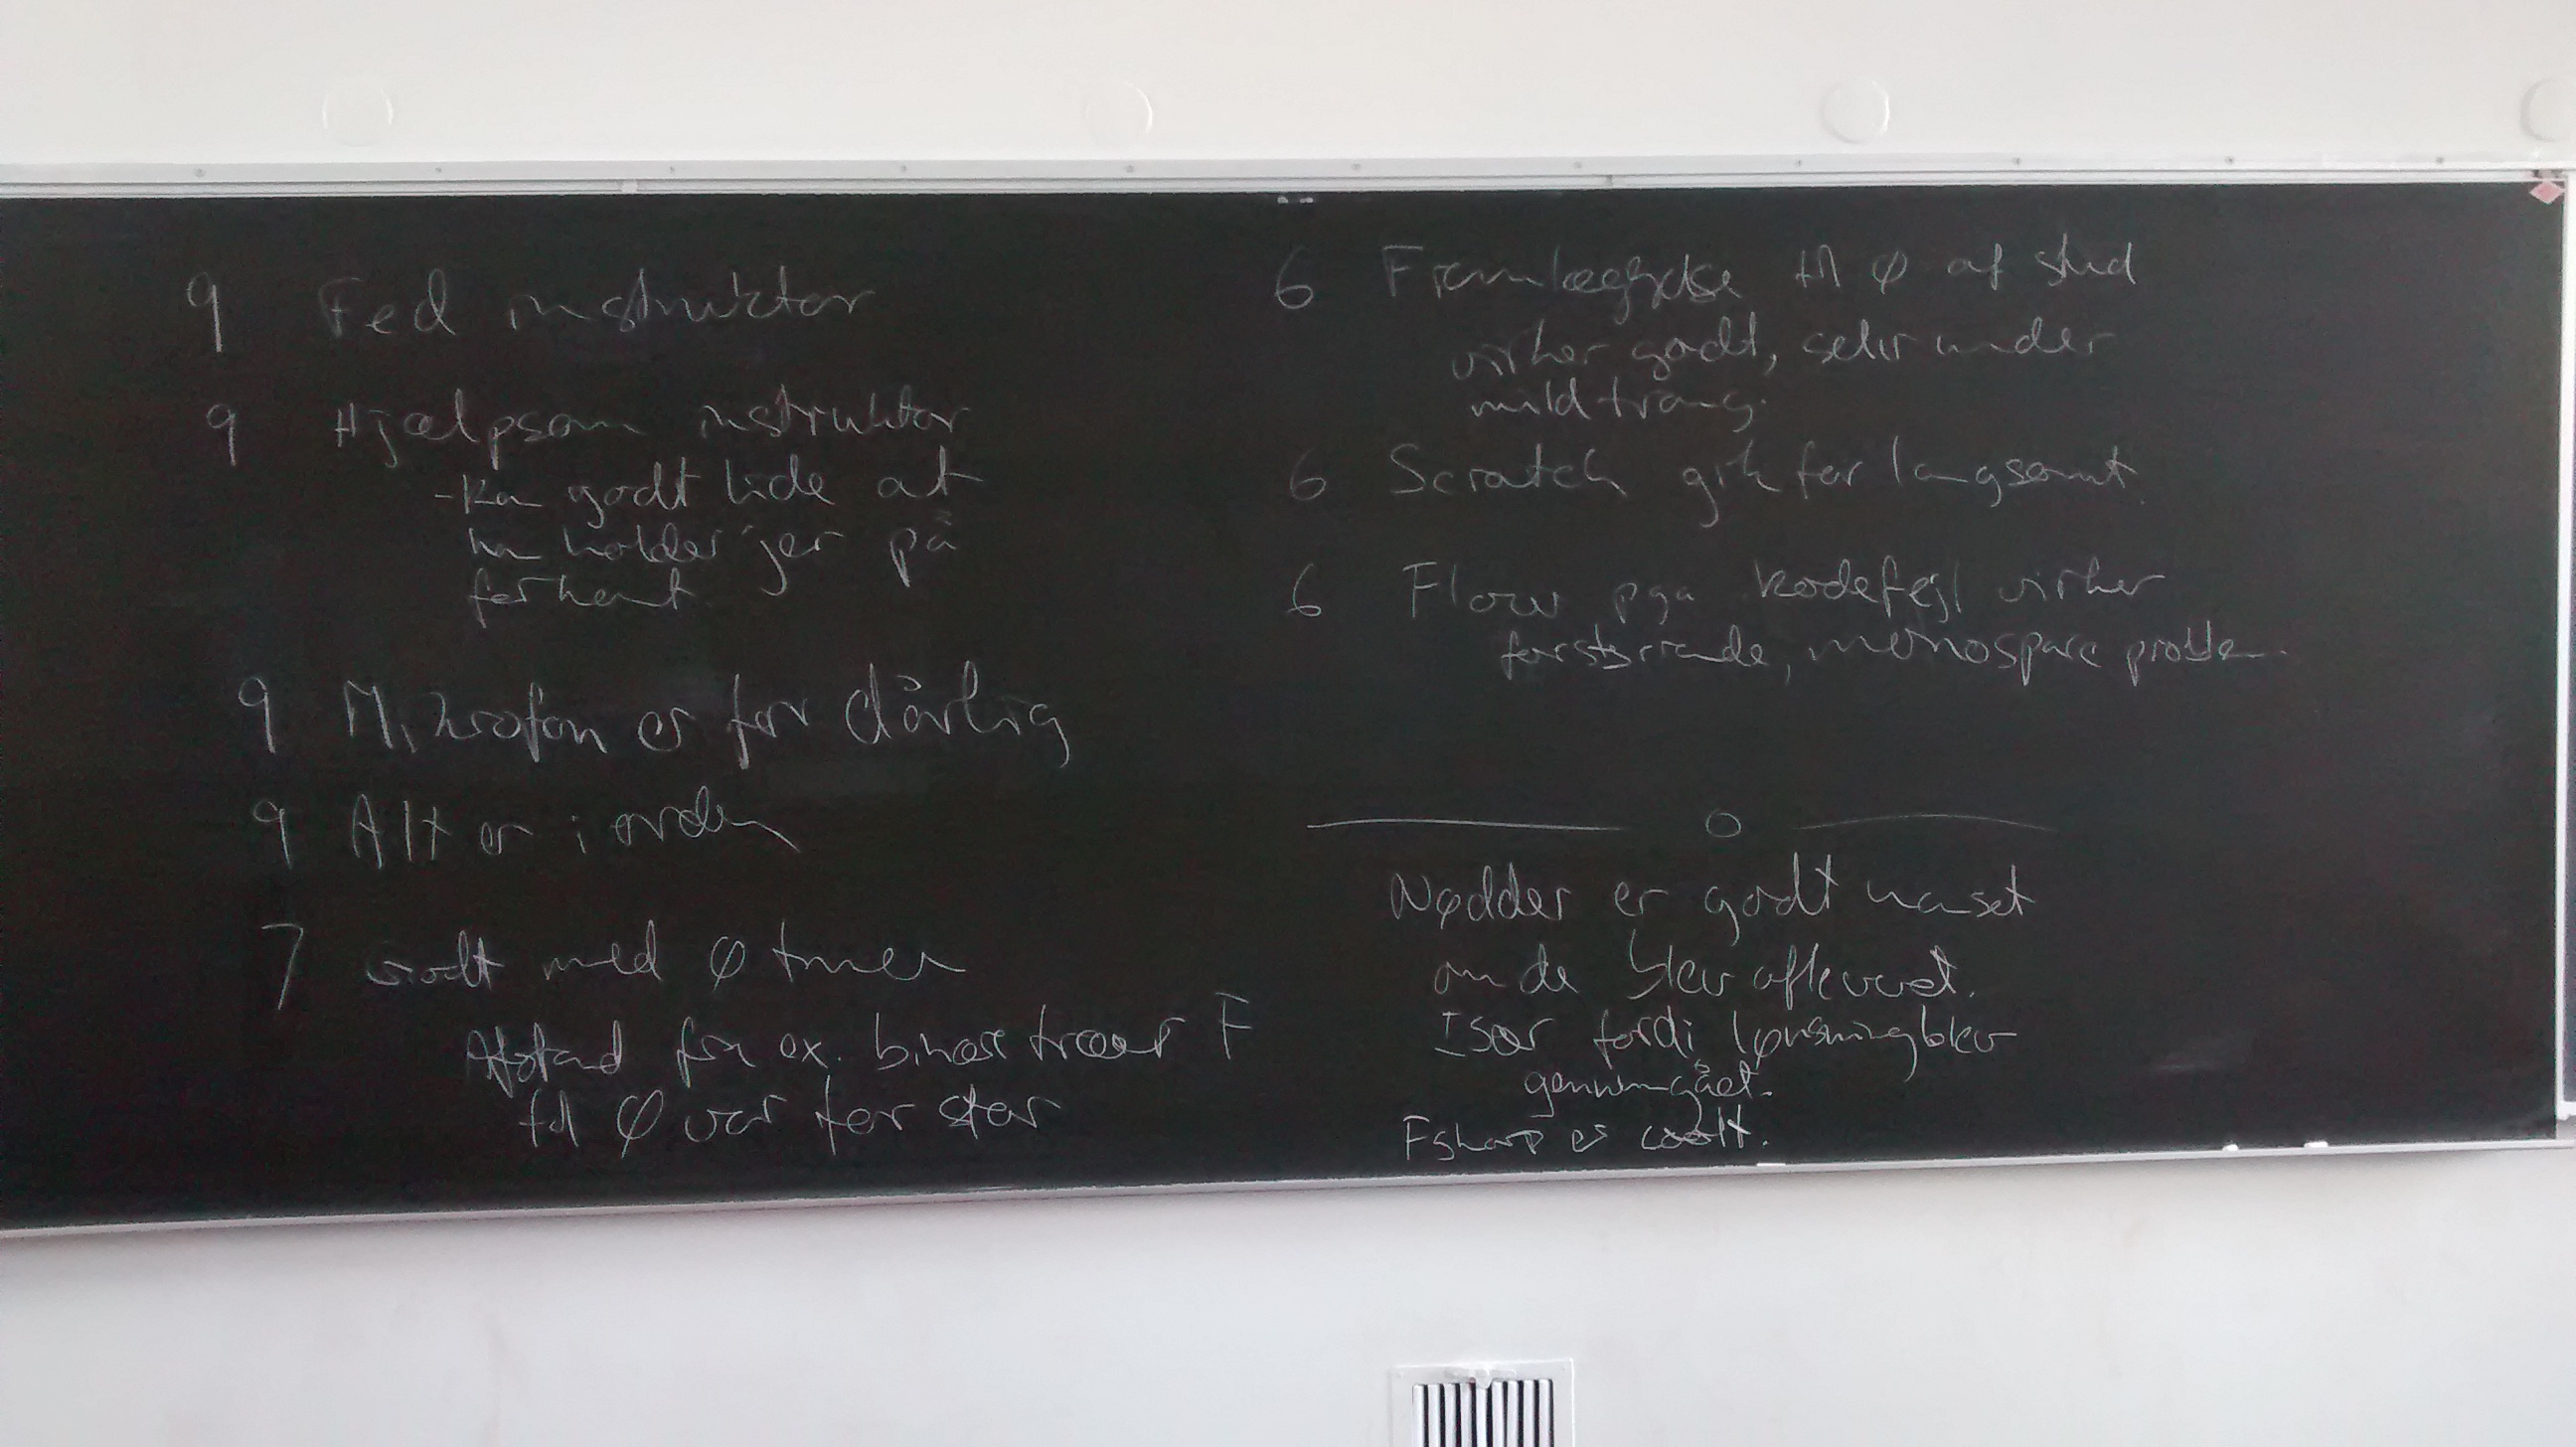 9 Fed instruktor
9 Hjælpsom instruktor
- Kan godt lide at
han holder jer på
forkant.
9 Mikrofon er for dårlig
9 Alt er i orden
7 Godt med φ timer
Afstand fra ex. binære træer F
til φ var for stor
6 Fremlæggelse til φ af stud
virker godt, selv under
mild tvang.
6 Scratch gik for langsomt.
6 Flow pga kodefejl virker
forstyrrende, monospace problem.
Nødder er godt uanset
om de blev afleveret.
Især fordi løsning blev
gennemgået.
Fsharp er